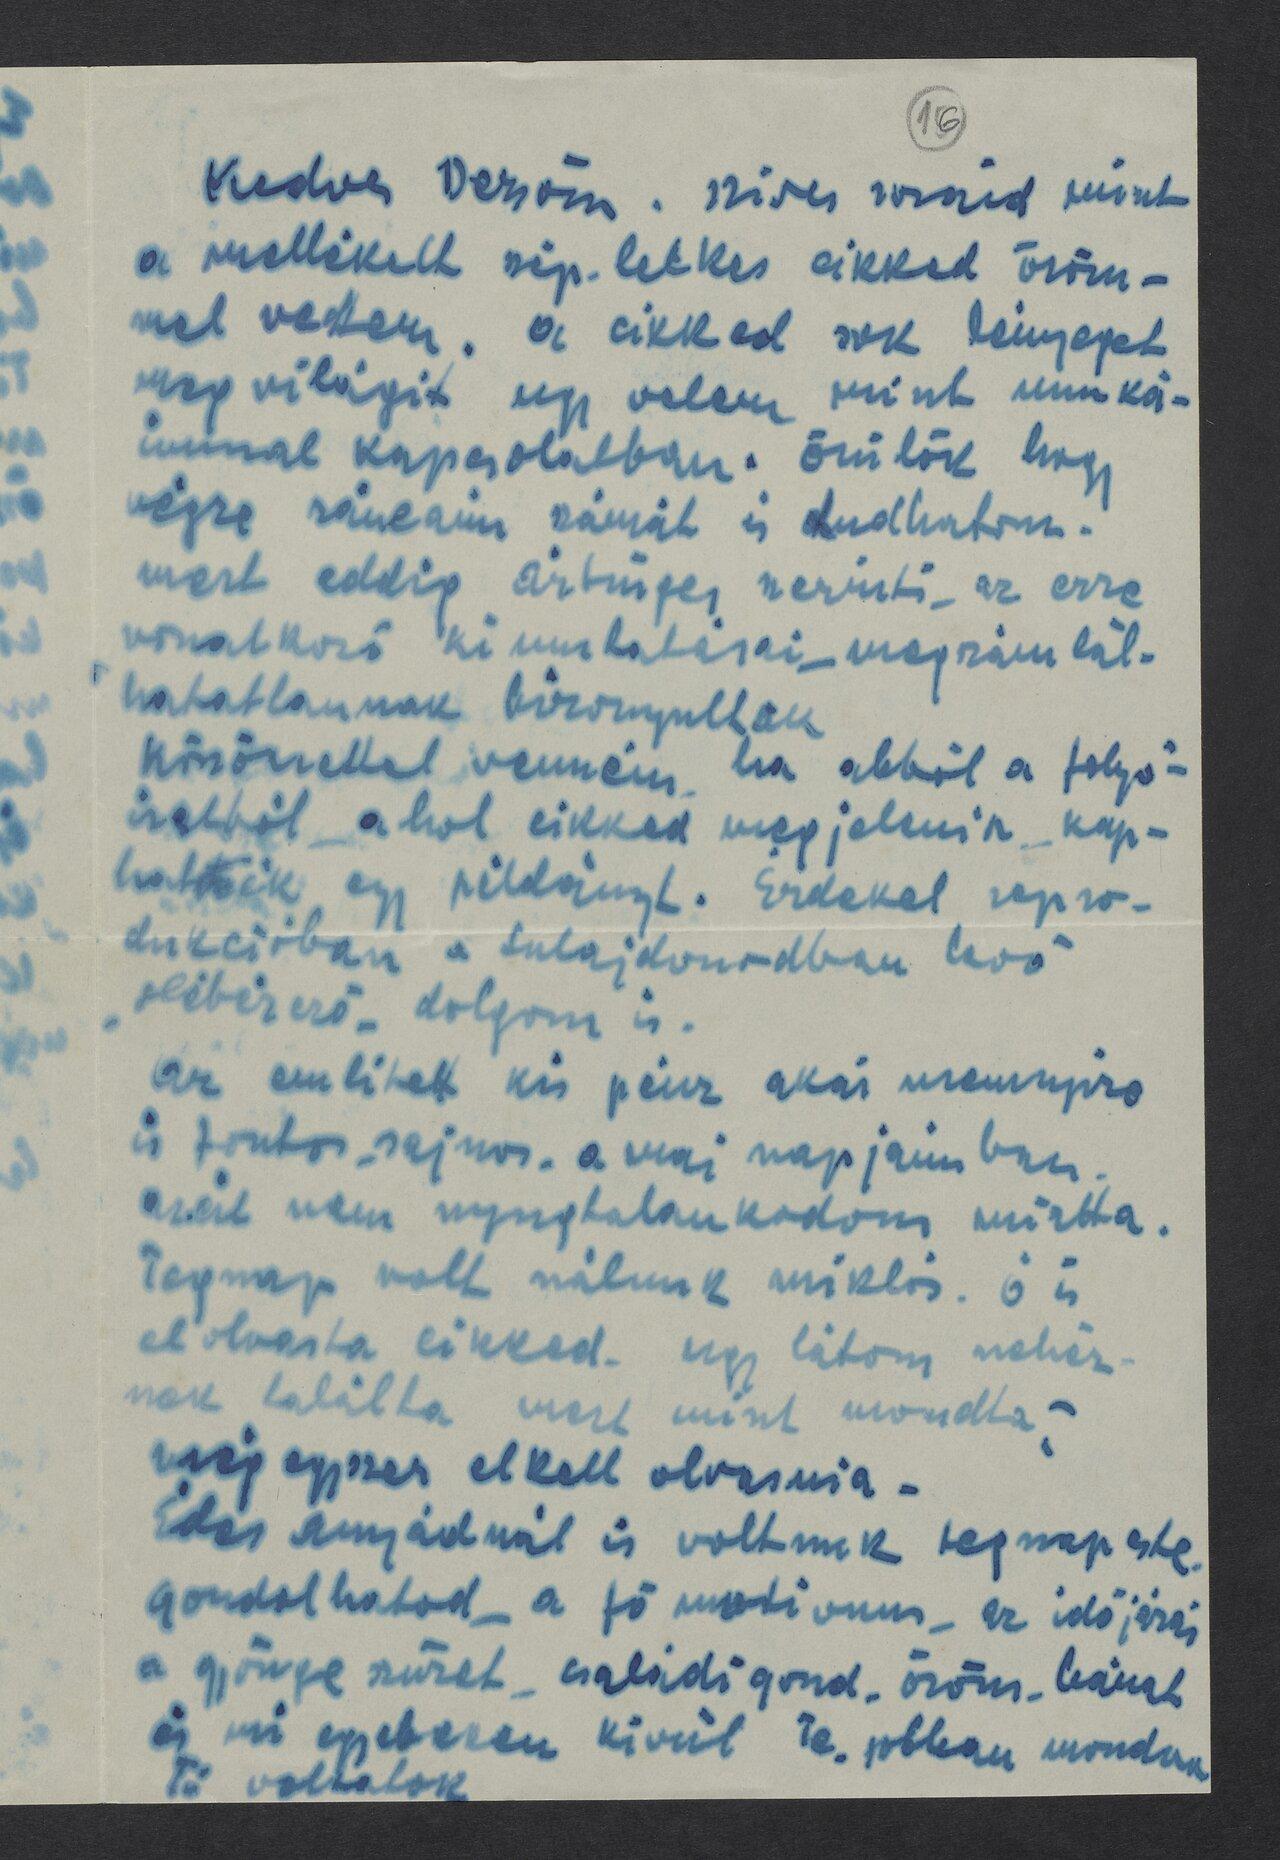 16
Kedves Dezsőm. szives soraid mint
a mellékelt szép-lelkes cikked öröm-
mel vettem. a cikked sok lényeget
meg világit ugy velem mint munká-
immal kapcsolatban. örülök hogy
végre ráncaim számát is tudhatom.
mert eddig Ártinger szerinti_ az erre
vonatkozó kimutatásai_ megszámlál-
hatatlannak bizonyultak
Köszönettel venném ha abból a folyó-
iratból_ ahol cikked megjelenik_ kap-
hatnék egy példányt. Érdekel repro-
dukcióban a tulajdonodban levő
"Hébérező" dolgom is.
Az emlitett kis pénz akár mennyire
is fontos_sajnos. a mai napjaimban.
azért nem nyugtalankodom miatta.
Tegnap volt nálunk Miklós. ő is
el olvasta cikked. ugy látom nehéz-
nek találta mert mint mondta:
még egyszer el kell olvasnia -
Édes Anyádnál is voltunk tegnap este.
gondolhatod_ a fő motivum_ az időjárás
a gyönge szüret_ családi gond_ öröm_ bánat
és mi egyebeken kivül Te. jobban mondva
Ti voltatok